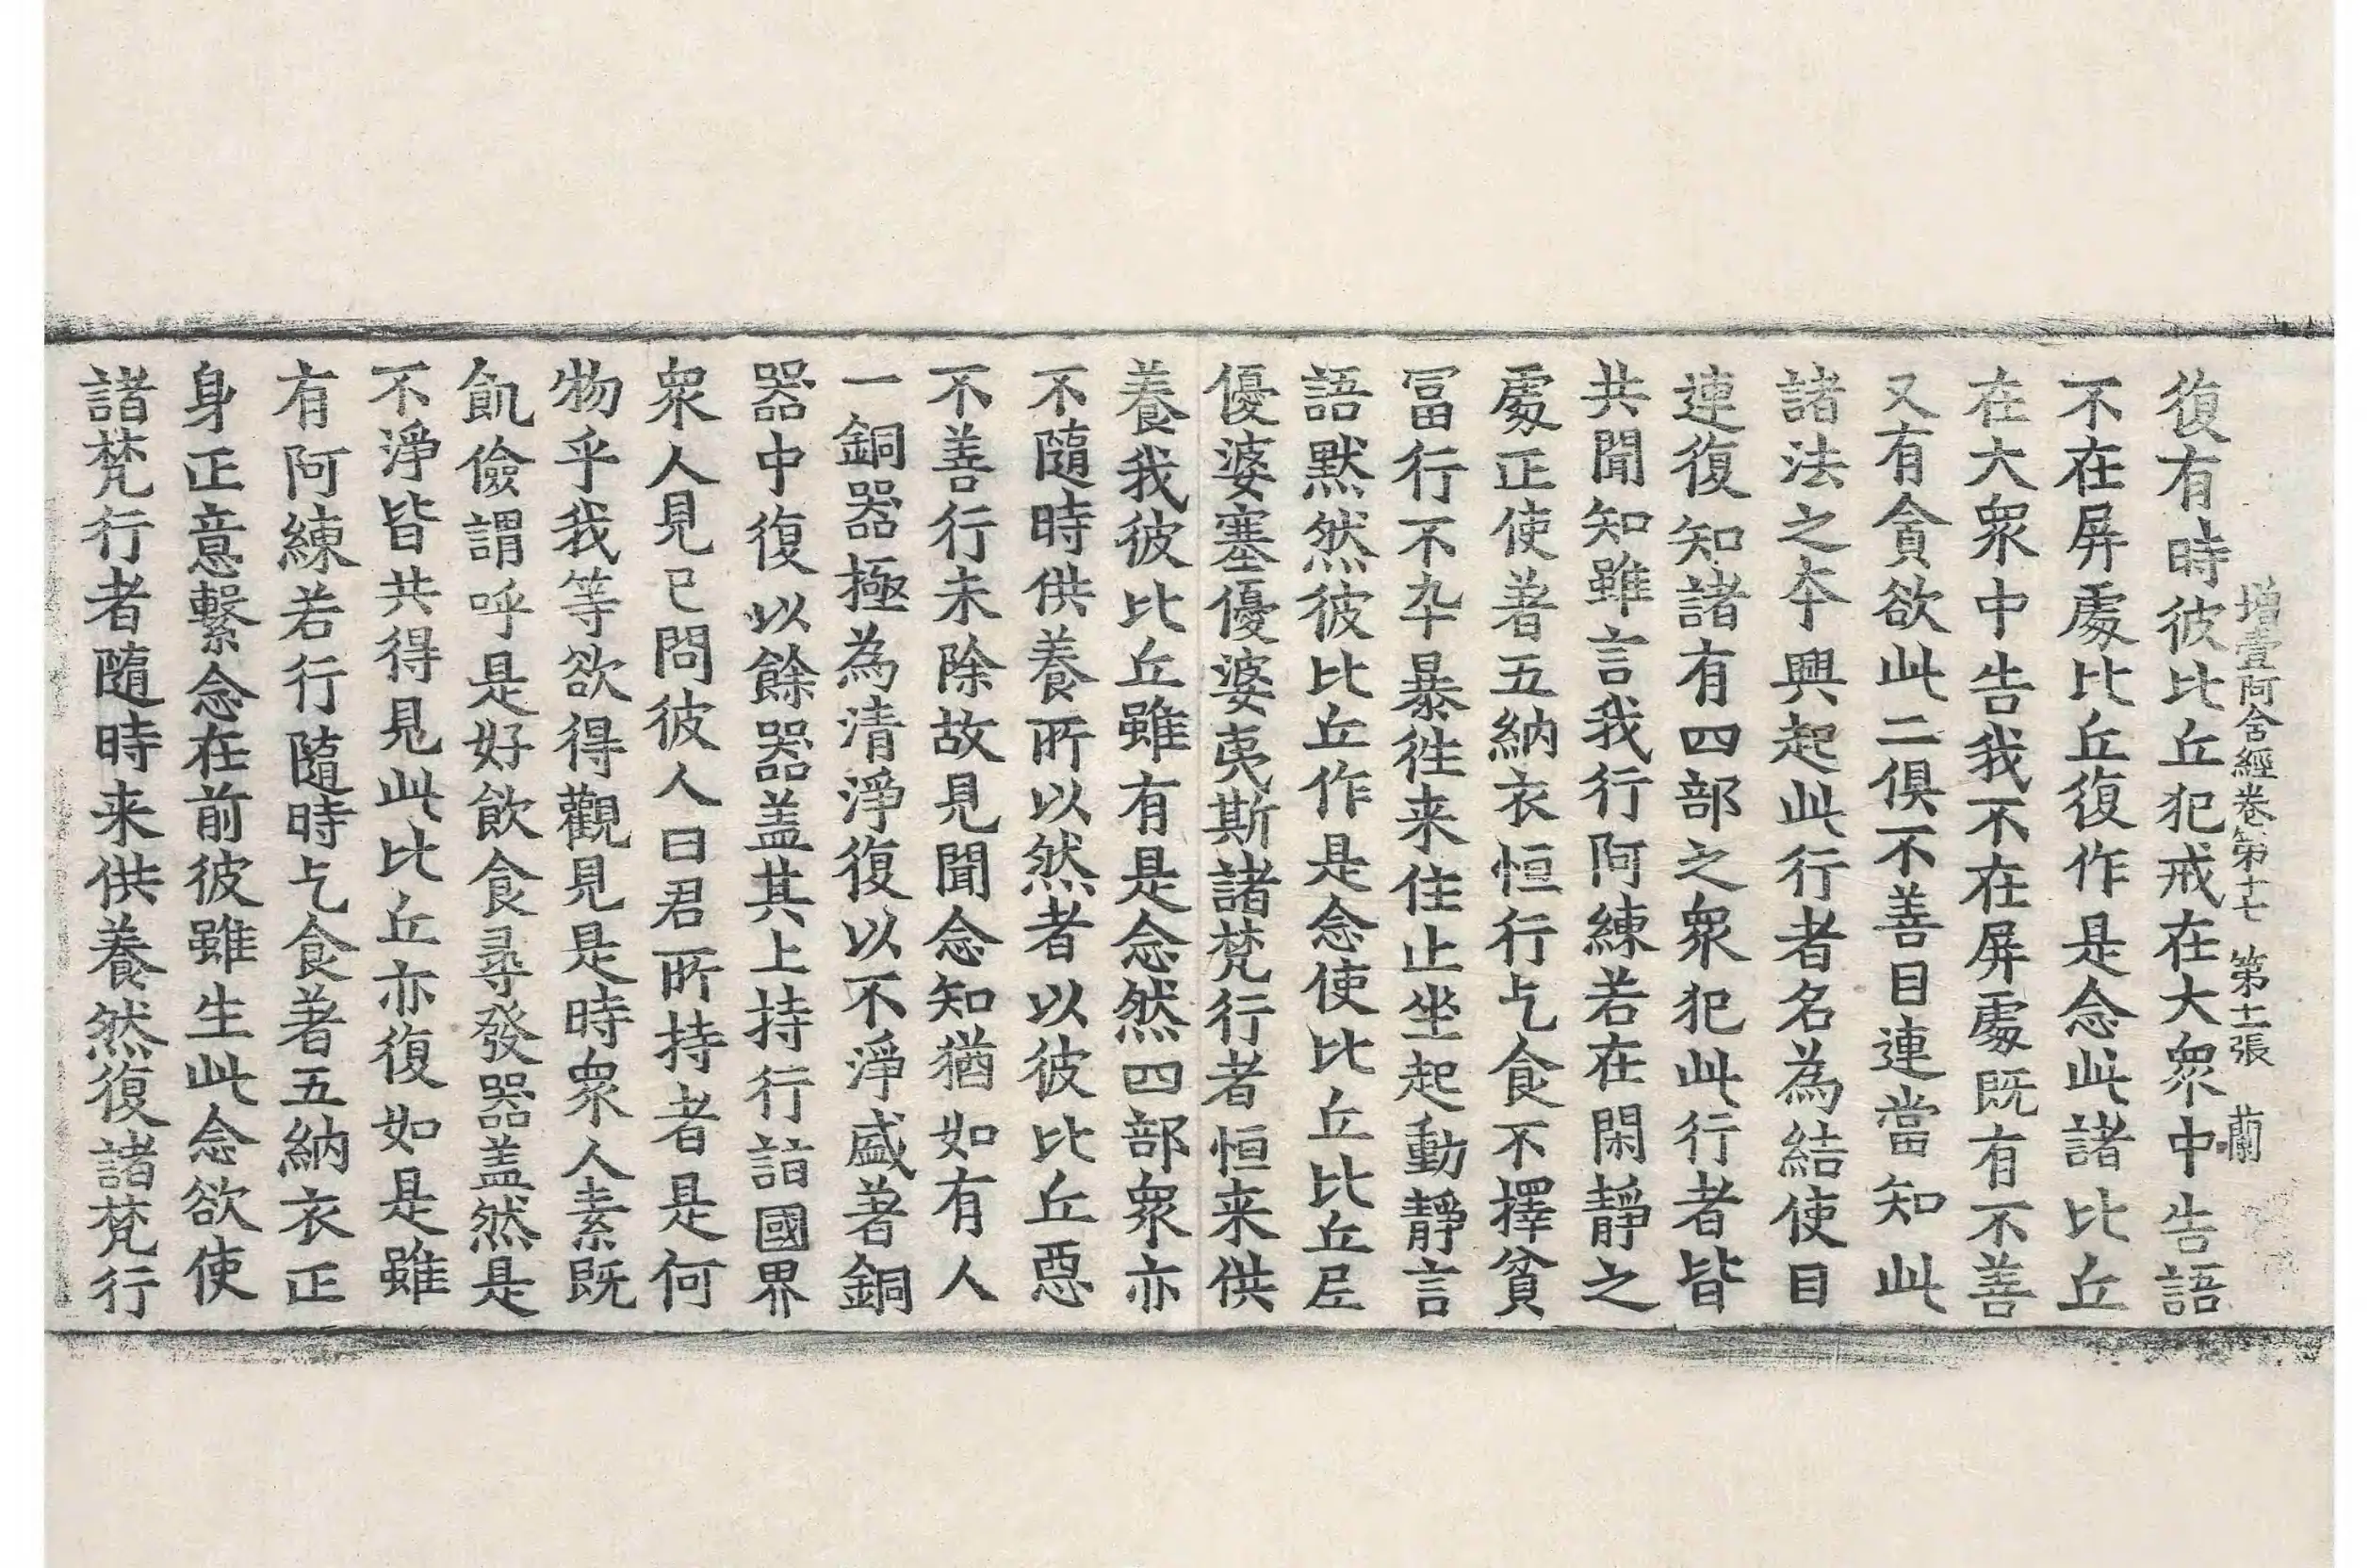 增壹阿含經卷第十七 第十二張 蘭
復有時彼比丘犯戒在大衆中告語
不在屏處比丘復作是念此諸比丘
在大衆中告我不在屏處既有不善
又有貪欲此二俱不善目連當知此
諸法之夲興起此行者名為結使目
連復知諸有四部之衆犯此行者皆
共聞知雖言我行阿練若在閑靜之
處正使著五納衣恒行乞食不擇貧
冨行不卒暴徃来住止坐起動靜言
語默然彼比丘作是念使比丘比丘尼
優婆塞優婆夷斯諸梵行者恒来供
養我彼比丘雖有是念然四部衆亦
不隨時供養所以然者以彼比丘惡
不善行未除故見聞念知猶如有人
一銅器極為清淨復以不淨盛著銅
器中復以餘器盖其上持行詣國界
衆人見已問彼人曰君所持者是何
物乎我等欲得觀見是時衆人素既
飢儉謂呼是好飲食尋發器盖然是
不淨皆共得見此比丘亦復如是雖
有阿練若行隨時乞食著五納衣正
身正意繫念在前彼雖生此念欲使
諸梵行者隨時来供養然復諸梵行